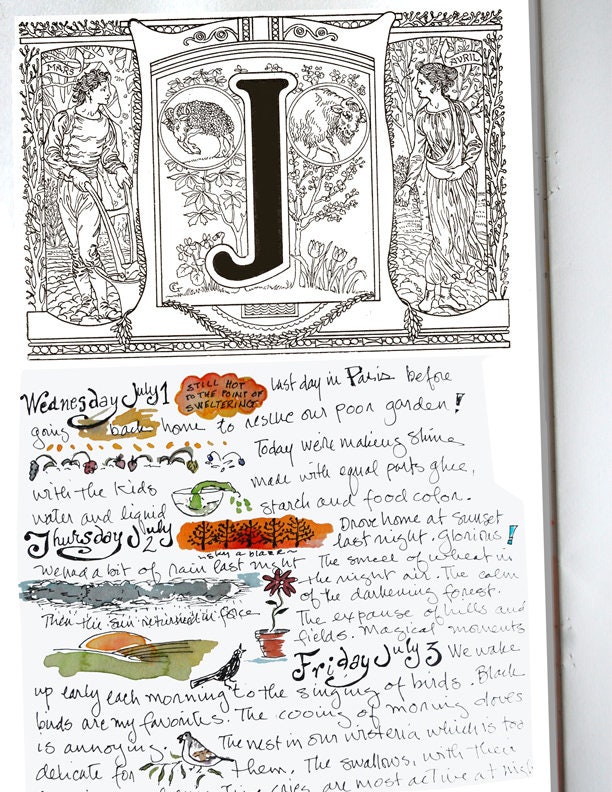 MARS
AVRIL
J
Wednesday July 1 STILL HOT TO THE POINT OF SWELTERING last day in Paris before
going back home to rescue our poor garden!
Today we're making slime
with the kids made with equal parts glue,
water and liquid starch and food color.
Thursday July 2 Drove home at sunset
last night. Glorious!
~sky a blaze~
We had a bit of rain last night The smell of wheat in
the night air. The calm
of the darkening forest.
Then the sun returned in force The expanse of hills and
fields. Magical moments
Friday July 3 We wake
up early each morning to the singing of birds. Black
birds are my favorites. The cooing of morning doves
is annoying. The nest in our wisteria which is too
delicate for them. The swallows, with their
cries, are most active at